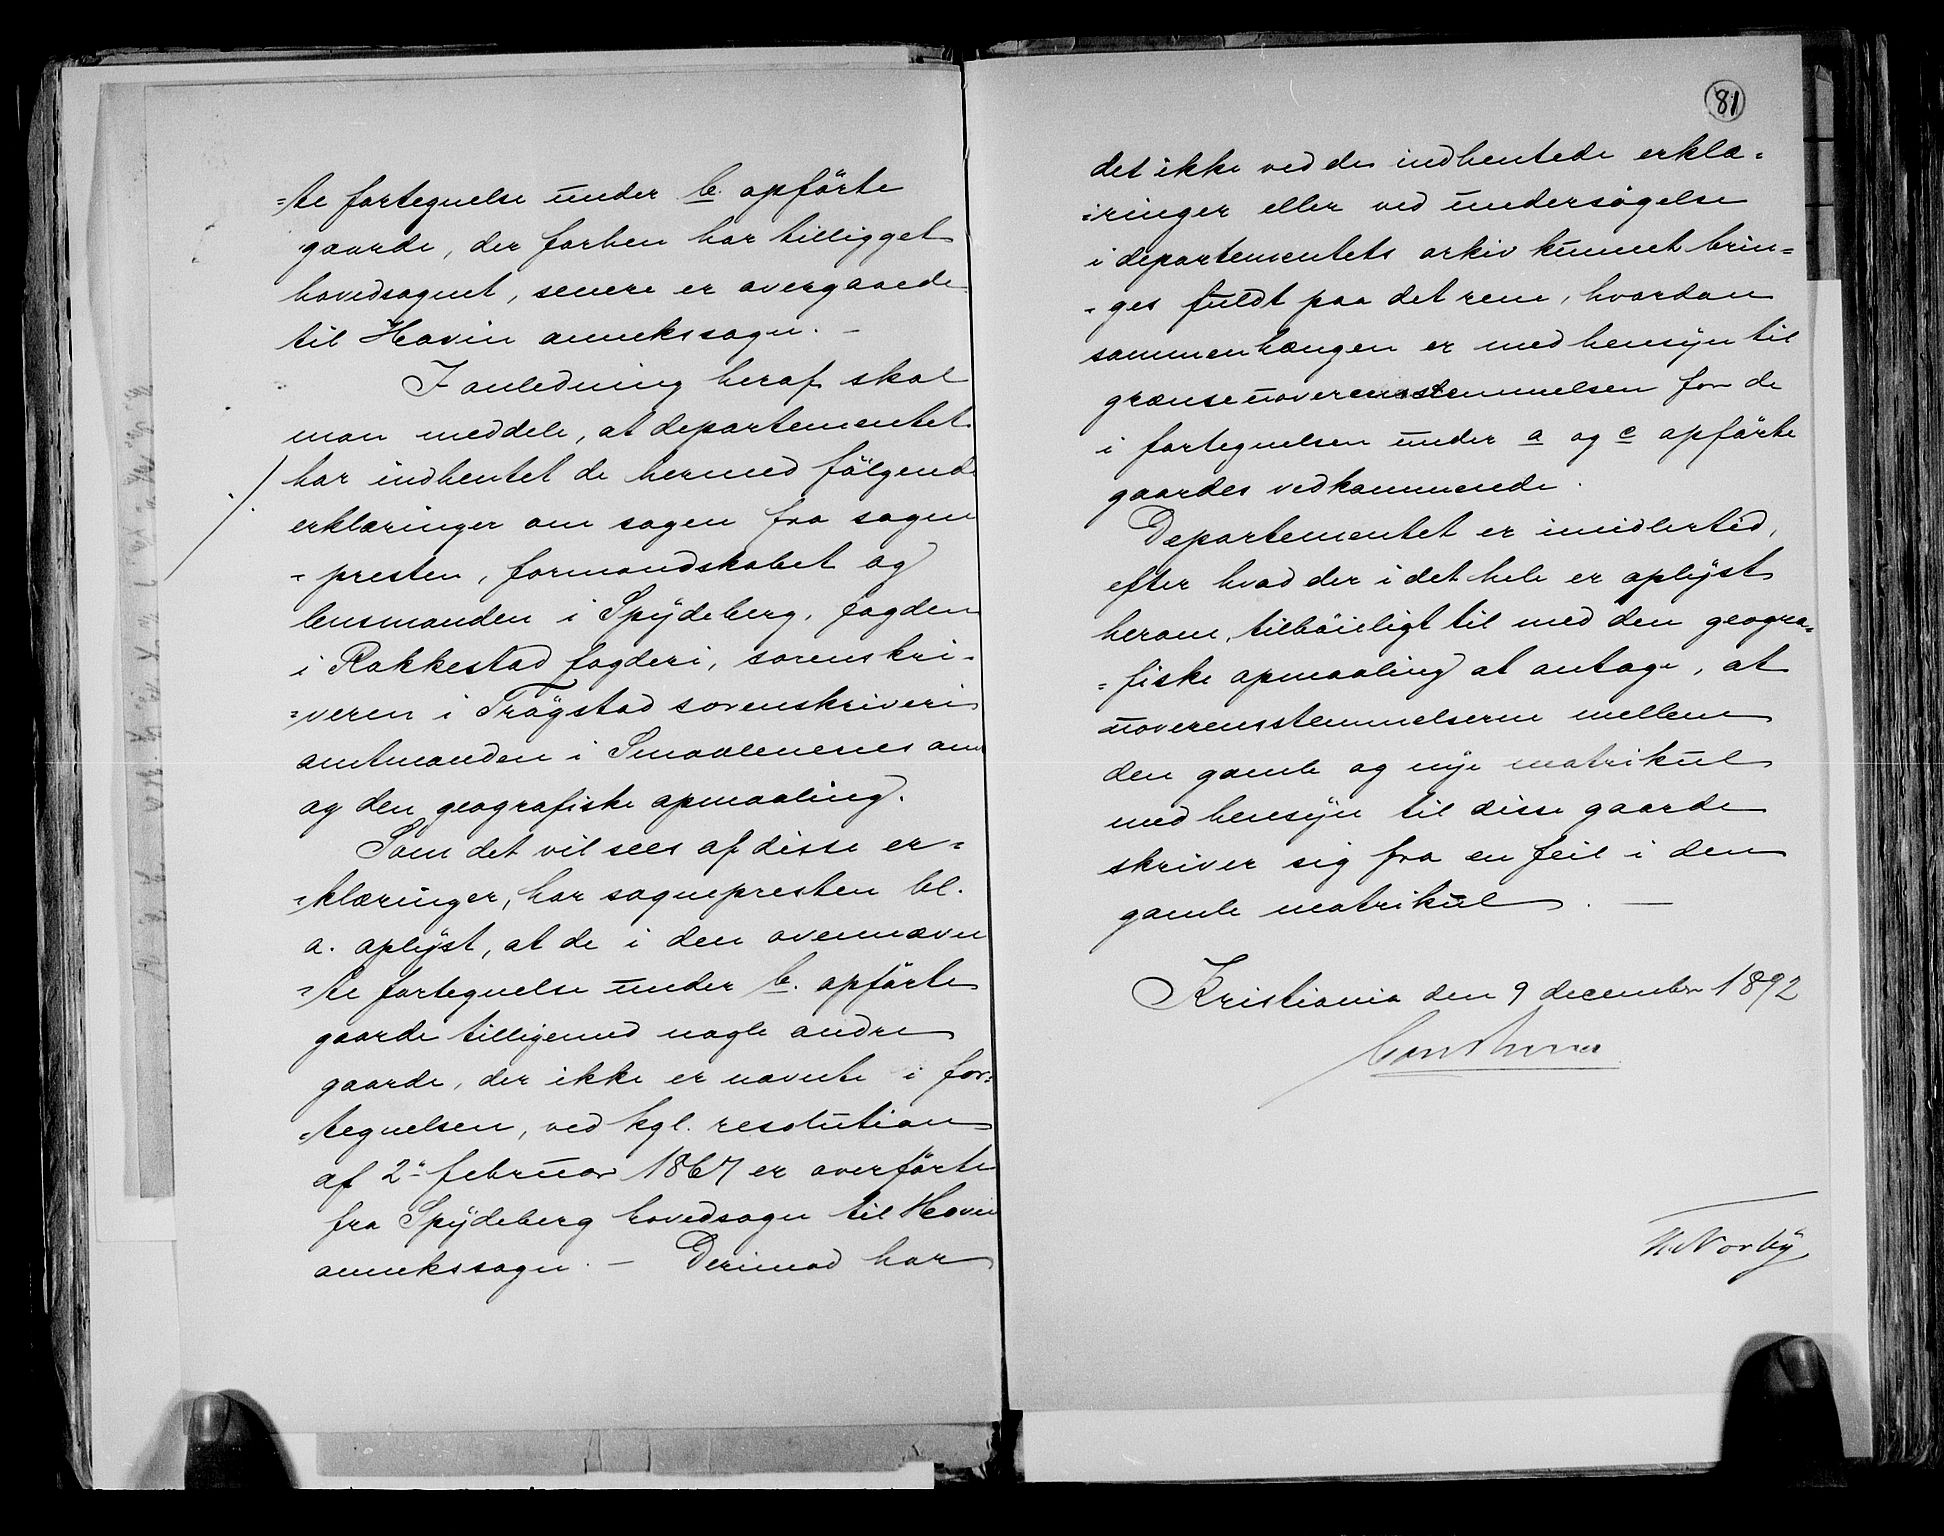 =te fortegnelse under b. opførte
gaarde, der forhen har tilligget
hovedsognet, senere er overgaaede
til Hovin annekssogn. –
I anledning heraf skal
man meddele, at departementet
har indhentet de hermed følgende
erklæringer om sagen fra sogne
=presten, formandskabet og
lensmanden i Spydeberg, fogden
i Rakkestad fogderi, sorenskri=
=veren i Trøgstad sorenskriveri
amtmanden i Smaalenenes amt
og den geografiske opmaaling.
Som det vil sees af disse er=
=klæringer, har sognepresten bl.
a. oplyst, at de i den ovennævn
=te fortegnelse under b. opførte
gaarde tilligemed nogle andre
gaarde, der ikke er nævnte i for=
=tegnelsen, ved kgl. resolution
af 2. februar 1867 er overførte
fra Spydeberg hovedsogn til Hovin
annekssogn. – Derimod har
81
det ikke ved de indhentede erklæ=
=ringer eller ved undersøgelse
i departementets arkiv kunnet brin=
=ges fuldt paa det rene, hvordan
sammenhængen er med hensyn til
grænseuoverensstemmelsen for de
i fortegnelsen under a og c opførte
gaardes vedkommende.
Departementet er imidlertid,
efter hvad der i det hele er oplyst
herom, tilbøieligt til med den geogra=
=fiske opmaaling at antage, at
uoverensstemmelserne mellem
den gamle og nye matrikul
med hensyn til disse gaarde
skriver sig fra en feil i den
gamle matrikul. –
Kristiania den 9 december 1892
N. Norby